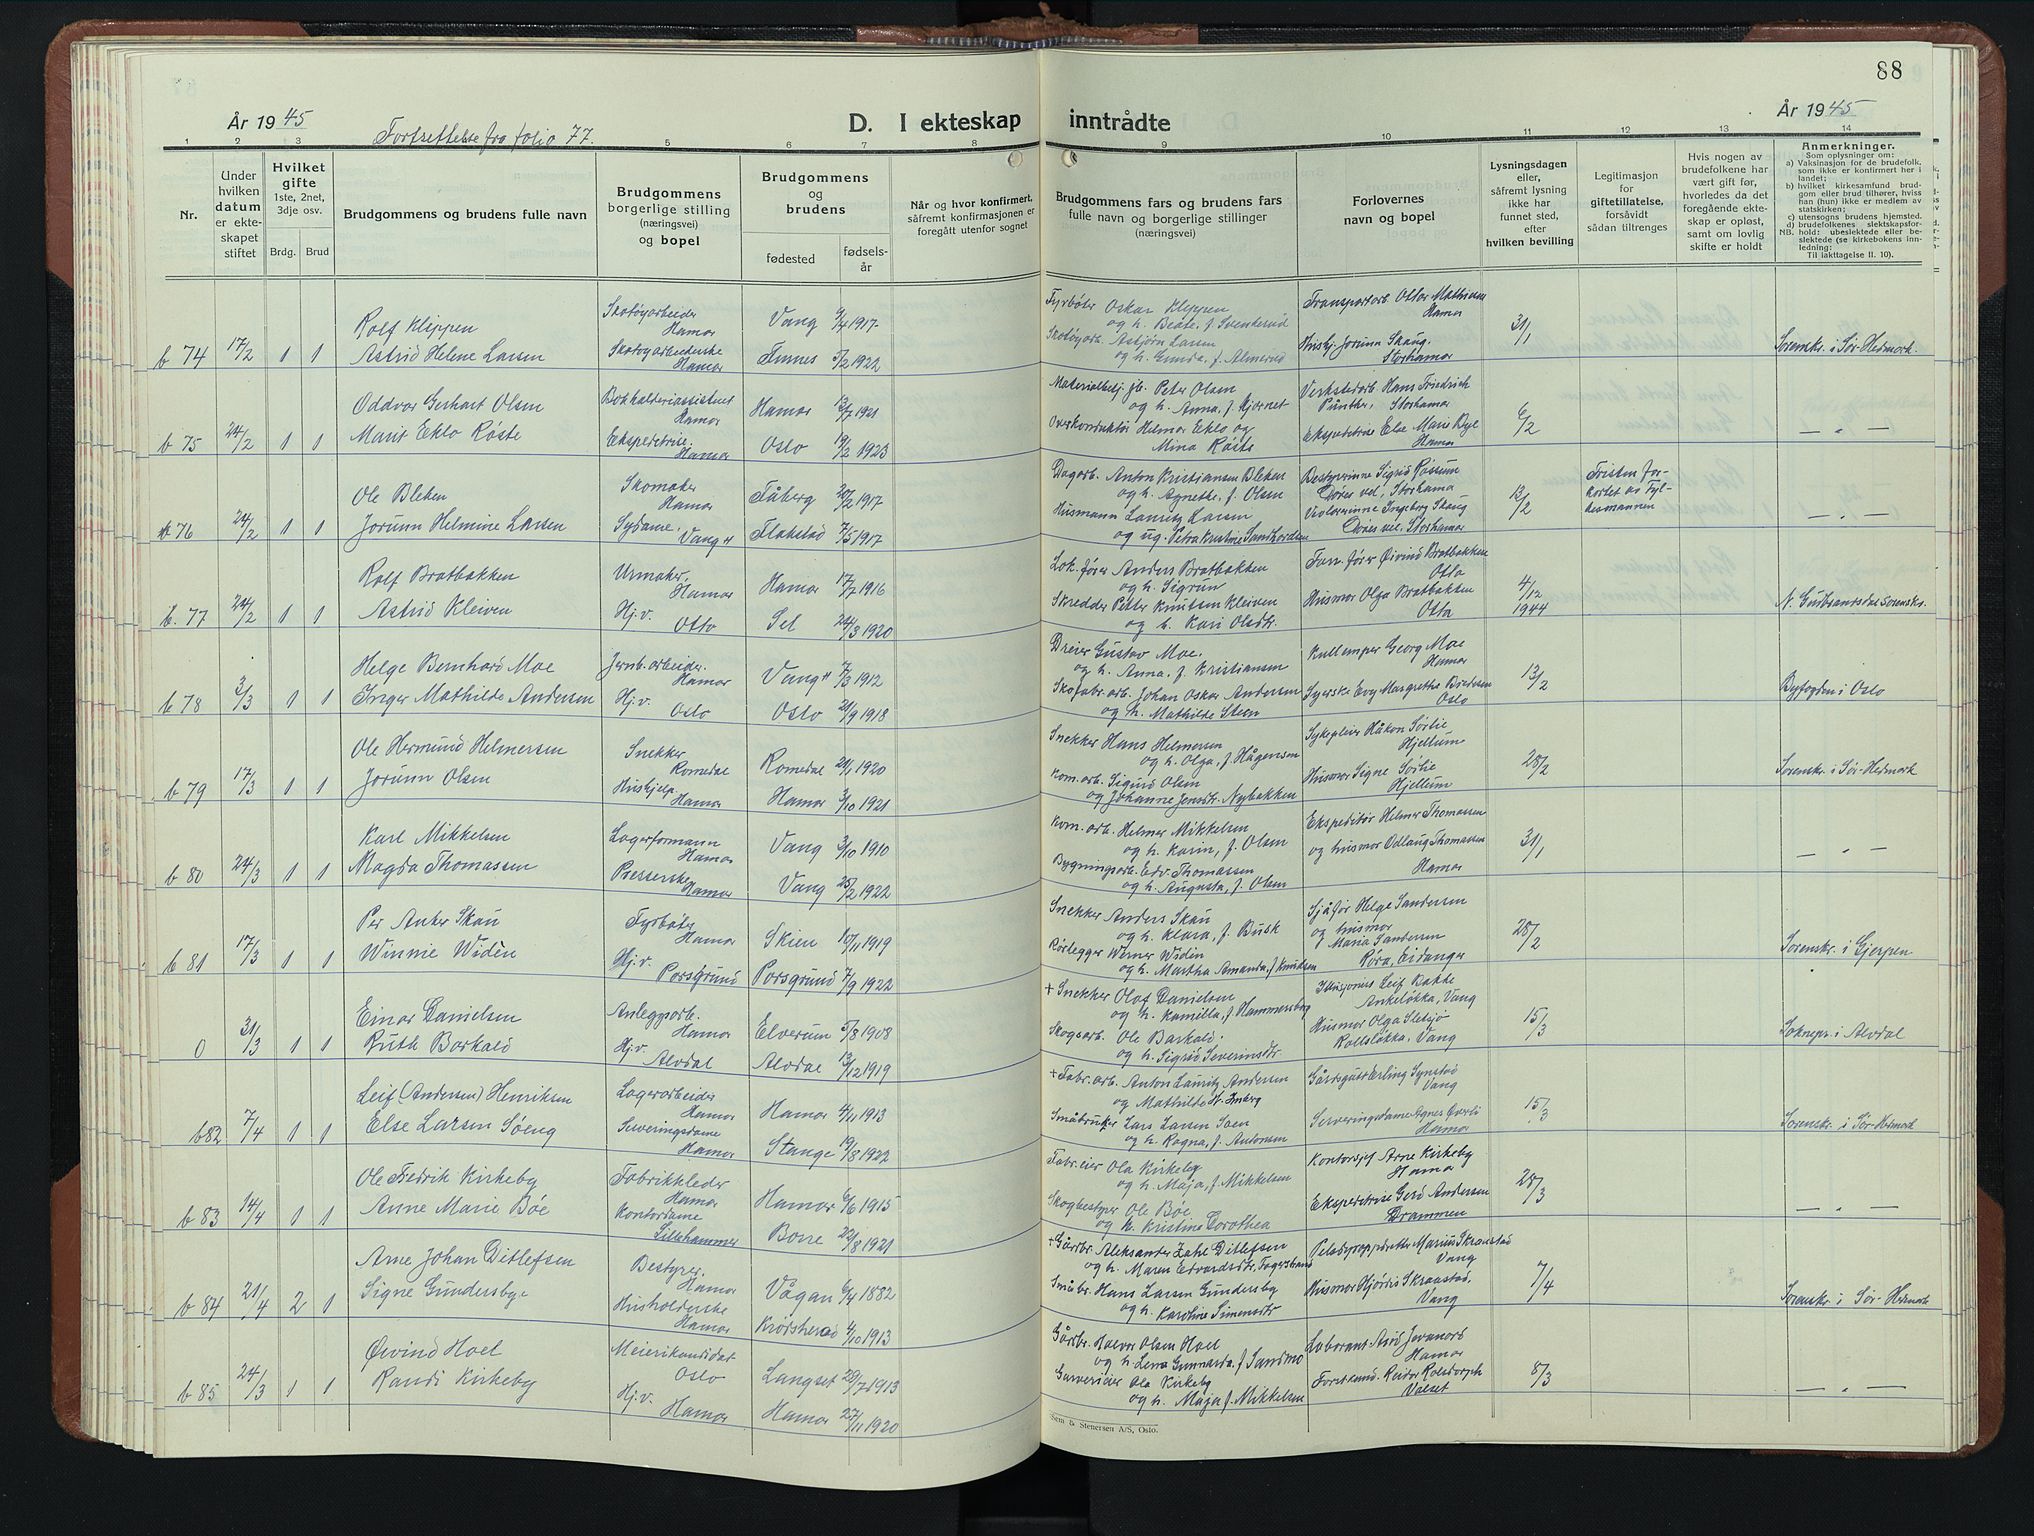 88
År 1945
Fortsettelse fra folio 77.
D. I ekteskap inntrådte
År 1945
1 2 3 5 6 7 8 9 10 11 12 13 14
Nr.
Under hvilken datum er ekteskapet stiftet
Hvilket gifte
1ste, 2net, 3dje osv.
Brdg. Brud
Brudgommens og brudens fulle navn
Brudgommens borgerlige stilling (næringsvei) og bopel
Brudgommens og brudens
fødested
fødselsår
Når og hvor konfirmert, såfremt konfirmasjonen er foregått utenfor sognet
Brudgommens fars og brudens fars fulle navn og borgerlige stillinger (næringsvei)
Forlovernes navn og bopel
Lysningsdagen eller, såfremt lysning ikke har funnet sted, efter hvilken bevilling
Legitimasjon for giftetillatelse, forsåvidt sådan tiltrenges
Hvis nogen av brudefolkene har vært gift før, hvorledes da det foregående ekteskap er opløst, samt om lovlig skifte er holdt
Anmerkninger.
Som oplysninger om:
a) Vaksinasjon for de brudefolk, som ikke er konfirmert her i landet;
b) hvilket kirkesamfund brudgom eller brud tilhører, hvis han (hun) ikke er medlem av statskirken;
c) utensogns brudens hjemsted.
d) brudefolkenes slektskapsforhold: ubeslektede eller beslektede (se kirkebokens innledning:
NB.
Til iakttagelse II. 10).
b 74 17/2 1 1
Rolf Klippen
Astrid Helene Larsen
Skotøyarbeider Hamar
Skotøyarbeiderske Hamar
Vang 9/4 1917
Furnes 5/2 1922
Fyrbøter Oskar Klippen
og h. Beate, f. Svenkerud
Skotøyarb. Asbjørn Larsen
og h. Gunda, f. Almerud
Transportarb. Ottar Mathisen Hamar
Hushj. Jorunn Skaug, Storhamar
31/1
Sorenskr. i Sør-Hedmark.
b 75 24/2 1 1
Oddvar Gerhart Olsen
Marit Eklo Røste
Bokholderiassistent Hamar
Ekspeditrise, Hamar
Hamar 13/7 1921
Oslo 19/2 1923
Materialbetj. jb. Peter Olsen
og h. Anna, f. Hjernet
Overkonduktør Helmer Eklo og
Mina Røste
Verkstedarb. Hans Friedrich Pünther, Storhamar
Ekspeditrise Else Marie Bye Hamar
6/2
— „ —
76 24/2 1 1
Ole Bleken
Jorunn Helmine Larsen
Skomaker Hamar
Sydame, Vang H
Fåberg 20/2 1917
Flakstad 7/5 1917
Dagarb. Anton Kristiansen Bleken
og h. Agnethe, f. Olsen
Husmann Lauritz Larsen
og ug. Petra Kristine Sandhordsen
Bestyrerinne Sigrid Røssum
Dores vei, Storhamar
Violærerinne Ingeborg Skaug
Dores vei, Storhamar
13/2
Fristen forkortet av Fylkesmannen
— „ —
b. 77 24/2 1 1
Rolf Bratbakken
Astrid Kleiven
Urmaker, Hamar
Hj.v. Otta
Hamar 17/7 1916
Sel 24/3 1920
Lok. fører Anders Bratbakken
og h. Sigrun
Skredder Petter Knutsen Kleiven
og h. Kari Olsdtr.
Fan. fører Øivind Bratbakken Otta
Husmor Olga Bratbakken Otta
4/12 1944
N. Gudbrandsdal sorenskr.
b 78 3/3 1 1
Helge Bernhard Moe
Inger Mathilde Andersen
Jernb. arbeider. Hamar
Hj.v. Oslo
Vang H 7/3 1912
Oslo 21/9 1918
Dreier Gustav Moe,
og h. Anna, f. Kristiansen
Skofabr. arb. Johan Oskar Andersen
og h. Mathilde Steen
Kullemper Georg Moe Hamar
Syerske Evy Margrethe Oslo
13/2
Byfogden i Oslo
b 79 17/3 1 1
Ole Hermund Helmersen
Jorunn Olsen
Snekker Romedal
Hushjelp Hamar
Romedal 21/1 1920
Hamar 3/10 1921
Snekker Hans Helmersen
og h. Olga, f. Hågensen
Kom. arb. Sigurd Olsen
og Johanne Jensdtr. Nybakken
Sykepleier Håkon Sørlie Hjellum
Husmor Signe Sørlie Hjellum
28/2
Sorenskr. i Sør-Hedmark
b 80 24/3 1 1
Karl Mikkelsen
Magda Thomassen
Lagerformann Hamar
Presserske Hamar
Vang 3/10 1910
Vang 25/2 1922
Kom. arb. Helmer Mikkelsen
og h. Karin, f. Olsen
Bygningsarb. Edv. Thomassen
og h. Augusta, f. Olsen
Ekspeditør Helmer Thomassen
og husmor Odlaug Thomassen
Hamar
31/1
— „ —
b 81 17/3 1 1
Per Anker Skau
Winnie Widén
Fyrbøter Hamar
Hj.v. Porsgrund
Skien 10/11 1919
Porsgrund 7/9 1922
Snekker Anders Skau
og h. Klara, f. Busk
Rørlegger Werner Widén
og h. Martha Amanda, f. Knudsen
Sjåfør Helge Sandersen
og husmor
Maria Sandersen
Røra, Eidanger
28/2
Sorenskr. i Gjerpen
0 31/3 1 1
Einar Danielsen
Ruth Barkald
Anleggsarb. Hamar
Hj.v. Alvdal
Elverum 5/8 1908
Alvdal 13/12 1919
+ Snekker Olaf Danielsen
og h. Kamilla, f. Hammersberg
Skogsarb. Ole Barkald.
og h. Sigrid Severinsdtr
Leif Bakke
Ankeløkka, Vang
Husmor Olga Sletsjø
Rollsløkka, Vang
15/3
Sokнepr. i Alvdal
b 82 7/4 1 1
Leif (Andersen) Henriksen
Else Larsen Søeng
Lagerarbeider Hamar
Serveringsdame Hamar
Hamar 4/11 1913
Stange 19/8 1922
+ Fabr. arb. Anton Lauritz Andersen
og Mathilde
Småbruker Lars Larsen Soen
og h. Ragna, f. Antonsen
Gårdsgutt Erling Synstad Vang
Serveringsdame Agnes Hamar
15/3
Sorenskr. i Sør-Hedmark
b 83 14/4 1 1
Ole Fredrik Kirkeby
Anne Marie Bøe
Fabrikkleder Hamar
Kontordame Lillehammer
Hamar 6/6 1915
Borre 22/8 1921
Fabr. eier Ola Kirkeby
og h. Maja, f. Mikkelsen
Skogbestyrer Ole Bøe
og h. Kristine Dorothea
Kontorsjef Arne Kirkeby Hamar
Ekspeditrise Gerd Andersen Drammen
28/3
— „ —
b 84 21/4 2 1
Arne Johan Ditlefsen
Signe Gundersby
Bestyrer, Hamar
Husholderske Hamar
Vågan 6/4 1882
Krødsherad 4/10 1913
+ Gårdbr. Aleksander Zahl Ditlefsen
og h. Maren Edvardsdtr. Fagerstrand
Småbr. Hans Larsen Gundersby
og h. Karoline Simensdtr
Pelsdyroppdretter Marius Skramstad Vang
Husmor Hjørdis Skramstad, Vang
7/4
Sorenskr. i Sør-Hedmark
b 85 24/3 1 1
Øivind Hoel
Randi Kirkeby
Meierikandidat Oslo
Hj.v. Hamar
Langset 29/7 1913
Hamar 27/11 1920
Gårdbr. Halvor Olsen Hoel
og h. Lena Gunnarda, f. Sandmo
Garverieier Ola Kirkeby
og h. Maja f. Mikkelsen
Laborant Hamar
Forstkand. Reidar Rolsdorph Valset
8/3
— „ —
Sem & Stenersen A/S, Oslo.